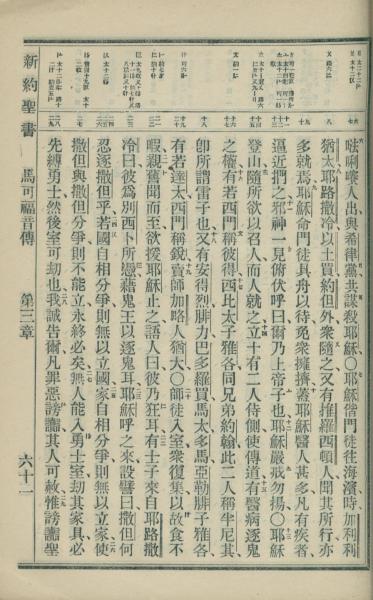 唎嚟人出與希律黨共謀殺耶穌○耶穌偕門徒往海濱時加利利
猶太耶路撒冷以土買約但外衆隨之又有推羅西頓人聞其所行亦
多就焉耶穌命門徒具舟以待免衆擁擠蓋耶穌醫人甚多凡有疾者
逼近捫之邪神一見俯伏呼曰爾乃上帝子也耶穌嚴戒勿揚○耶穌
登山隨所欲以召人而人就之立十有二人侍側使傳道有醫病逐鬼
之權有若西門稱彼得西比太子雅各同兄弟約翰此二人稱半尼其
卽所謂雷子也又有安得烈腓力巴多羅買馬太多馬亞勒腓子雅各
有若達太西門稱銳賣師加略人猶大○師徒入室衆復集以故食不
暇親舊聞而至欲援耶穌止之語人曰彼乃狂耳有士子來自耶路撒
冷曰彼爲別西卜所憑藉鬼王以逐鬼耳耶穌呼之來設譬曰撒但何
忍逐撒但乎若國自相分爭則無以立國家自相分爭則無以立家使
撒但與撒但分爭則不能立永終必矣無人能入勇士室劫其家具必
先縛勇士然後室可劫也我誠告爾凡罪惡謗讟其人可赦惟謗讟聖
新約聖書 馬可福音傳 第三章 六十一